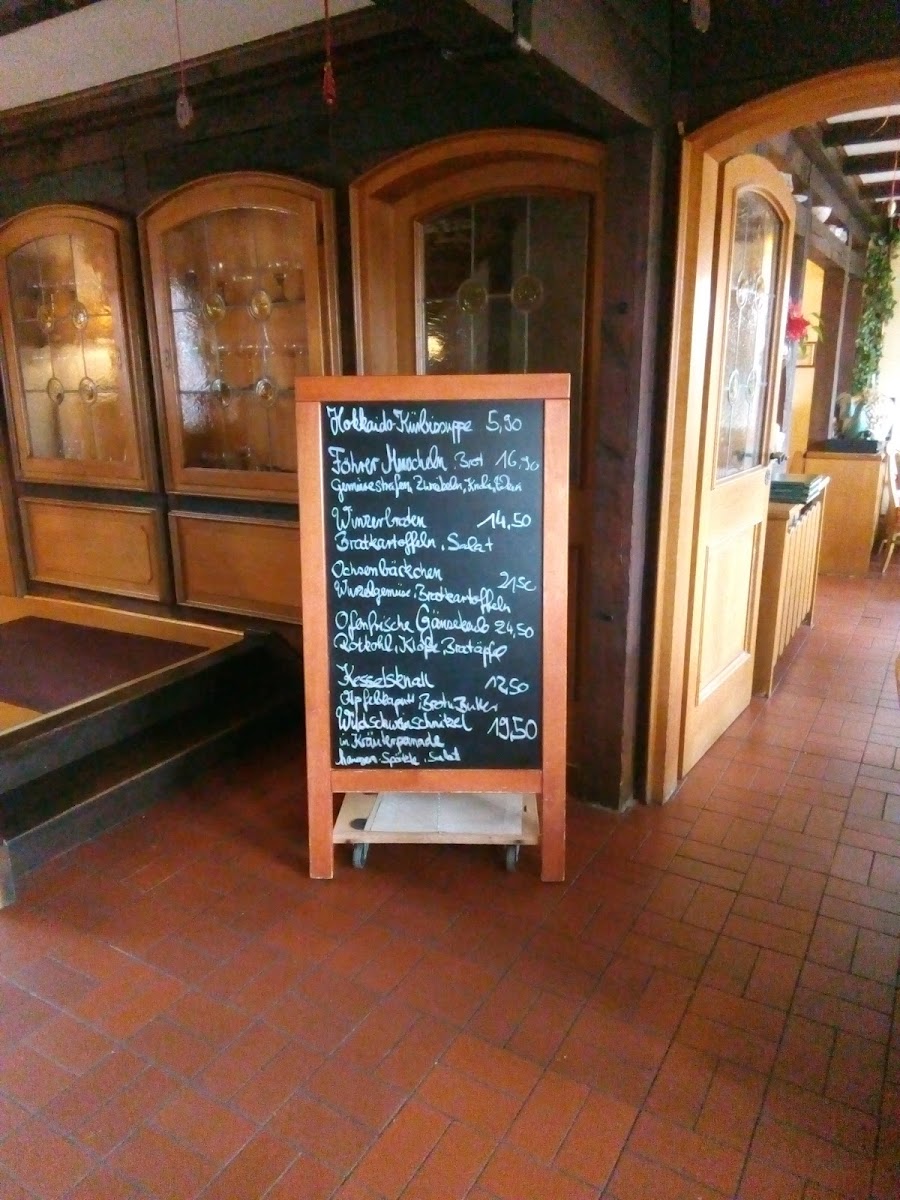 Hokkaido Kürbissuppe 5,90
Föhrer Muscheln, Brot 16,90
Gemüsestreifen, Zwiebeln,
Winzerbraten 14,50
Bratkartoffeln, Salat
Ochsenbäckchen 21,50
Wurzelgemüse, Bratkartoffeln
Ofenfrische Gänsekeule 24,50
Rotkohl, Klöße, Bratapfel
Kesselsknall 12,50
Brot u. Butter
Wildschweinschnitzel 19,50
in Kräuterpanade
Spätzle, Salat